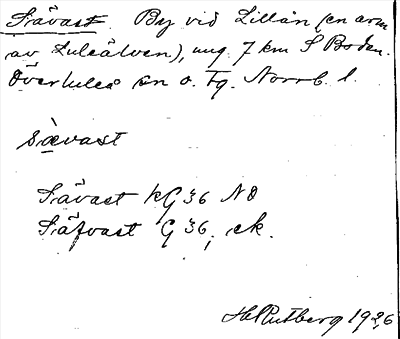 Sävast. By vid Lillån (en arm
av Luleälven), ung. 7 km S Boden.
Överluleå sn o. tg. Norrb. l.
Sävast
Sävast kG 36 NO
Säfvast G 36, ek.
H. Rutberg 1926